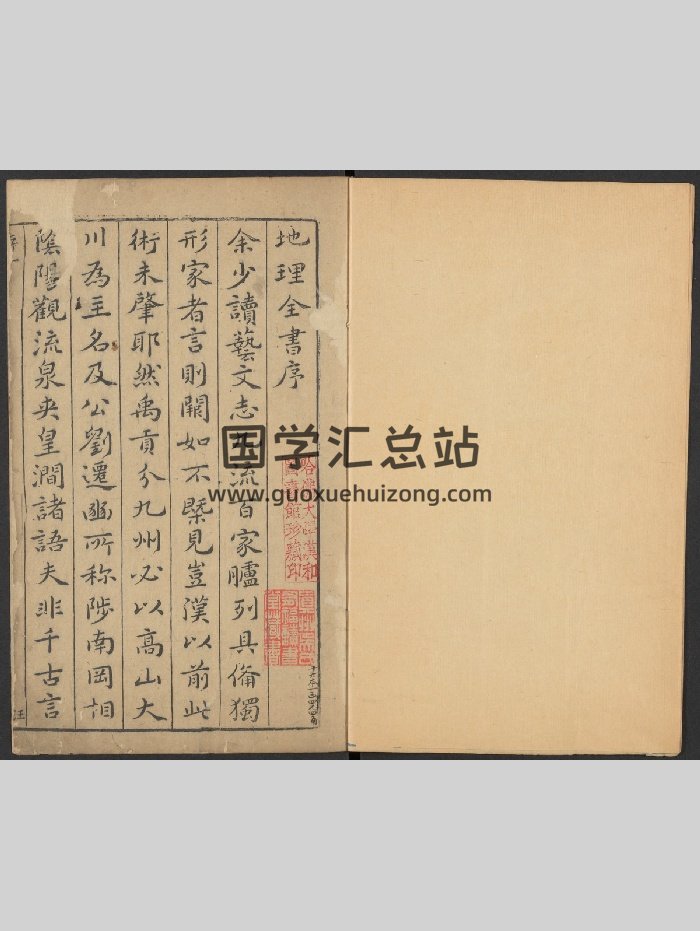 地理全書序
余少讀藝文志九流百家臚列具備獨
形家者言則闕如不槩見豈漢以前此
術未肇耶然禹貢分九州必以高山大
川為主名及公劉遷豳所称陟南岡相
陰陽觀流泉夾皇澗諸語夫非千古言
国学汇总站
www.guoxuehuizong.com
哈佛大學漢和
圖書館珍藏印
序一
汪